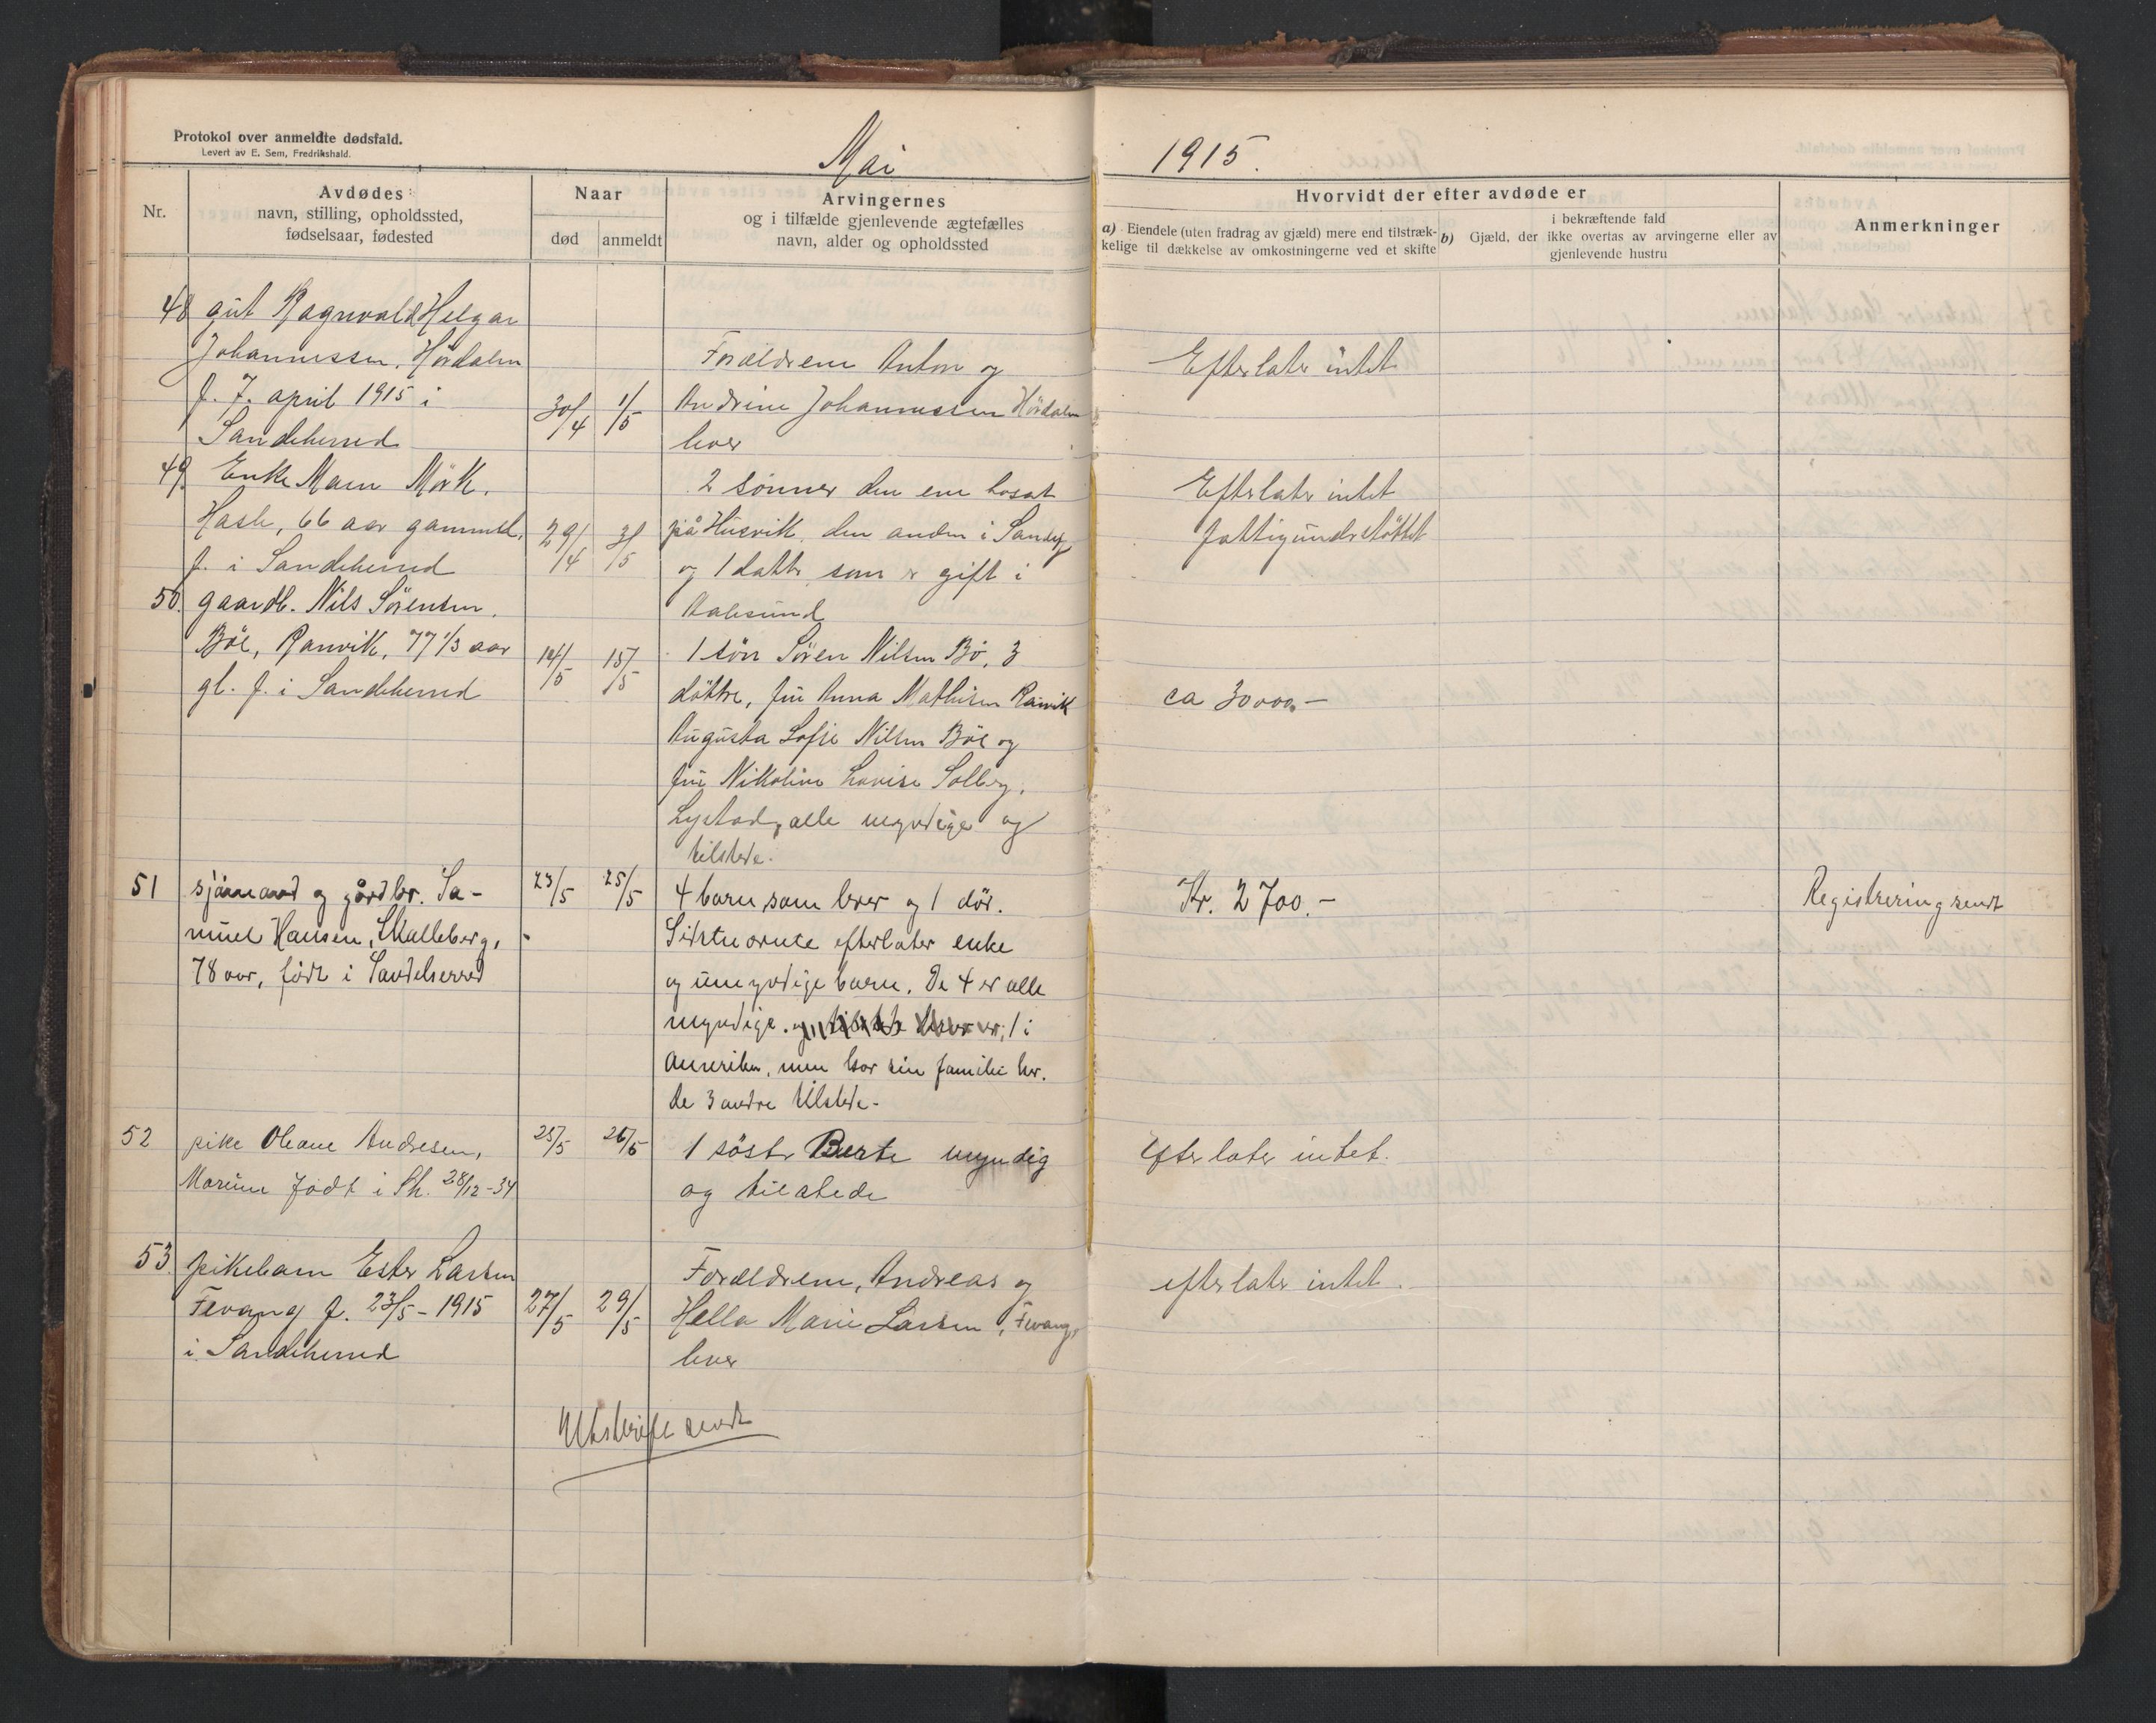 Protokol over anmeldte dødsfald.
Levert av E. Sem, Fredrikshald.
Mai
1915.
Nr.
Avdødes
navn, stilling, opholdssted,
fødselsaar, fødested
Naar
død
anmeldt
Arvingernes
og i tilfælde gjenlevende ægtefælles
navn, alder og opholdssted
Hvorvidt der efter avdøde er
a) Eiendele (uten fradrag av gjæld) mere end tilstræk-
kelige til dækkelse av omkostningerne ved et skifte
i bekræftende fald
b) Gjæld, der ikke overtas av arvingerne eller av
gjenlevende hustru
Anmerkninger
48 gut Ragnvald Helgar
Johannessen, Hørdalen
f. 7. april 1915 i
Sandeherred
30/4
1/5
Forældrene Anton og
Andrine Johannessen Hørdalen
lever
Efterlater intet
49. Enke Maren Mørk.
Hasle, 66 aar gammel,
f. i Sandeherred
29/4
3/5
2 sønner den ene bosat
på Husvik, den anden i Sandefj.
og 1 datter som er gift i
Aalesund
Efterlater intet
fattigunderstøttet
50. gaardb. Nils Sørensen.
Bøe, Ranvik, 77 1/3 aar
gl. f. i Sandeherred
14/5
15/5
1 søn Søren Nilsen Bø, 3
døttre, fru Anna Mathisen Ranvik
Augusta Sofie Nilsen Bøe og
fru Nikoline Lovise Solberg,
Lystad, alle myndige og
tilstede.
ca 30000,-
51 sjømand og gårdbr. Sa-
muel Hansen, Skalleberg,
78 aar, født i Sandeherred
23/5
25/5
4 barn som lever og 1 død.
Sidstnævnte efterlater enke
og umyndige barn. De 4 er alle
myndige. 1 i
Amerika, men har sin familie her.
De 3 andre tilstede.
Kr. 2700.-
Registrering sendt
52 pike Oleane Andresen,
Morenne født i Sh. 28/12-34
25/5
26/5
1 søster Berte myndig
og tilstede
efterlater intet.
53. pikebarn Ester Larsen
Fevang f. 23/5-1915
i Sandeherred
27/5
29/5
Forældrene, Andreas og
Hella Marie Larsen, Fevang,
lever
efterlater intet.
Utskrift sendt